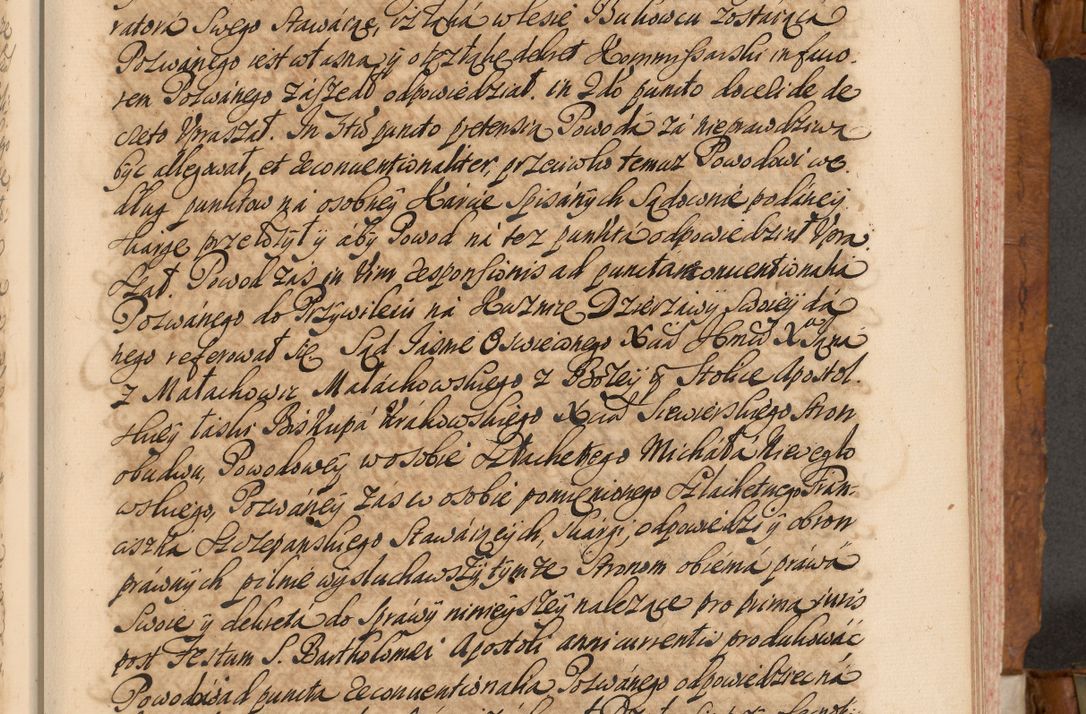 ratora Swego Stawáiąc, iż Łąká w lesie Bukowcu zostáiąca
Pozwánego iest własna, y o tęż Łąkę dekret Kommissarski in favo-
rem Pozwánego zászedł odpowiedział. in 2do puncto docelide de
creto Upraszał. In 3tio puncto pretensią Powodá zá nieprawdziwą
być allegował, et reconventionaliter, przeciwko temuż Powodowi we
dług punktow ná osobney Kárcie Spisánych Sądownie podáney
skargę przełożył y áby Powod ná też punktá odpowiedział Upra
szał. Powod zás in Vim responsionis ad puncta reconventionalia
Pozwánego do Przywileiu ná Kuznice Dzierżawy Swoiey dá
nego referował się Sąd Jasnie Oswieconego Xcia Jmci Xa Jana
z Małachowic Małachowskiego z Bożey y Stolice Apostol.
skiey łaski Biskupá Krakowskiego Xcia Siewierskiego Stron
obudwu, Powodowey w osobie Szlachetnego Micháła Niewęgło
wskiego, Pozwáney zás w osobie pomienionego Szlachetnego Fran-
ciszka Szczepanskiego Stawáiących, skargi, odpowiedzi y obron
práwnych pilnie wysłuchawszy tymże Stronom obiemá prawá
Swoie y dekretá do Sprawy ninieyszey należące pro prima juris
post Festum S. Bartholomæi Apostoli anni currentis produkowáć
Powodowi ad puncta reconventionalia Pozwánego odpowiedzieć ná